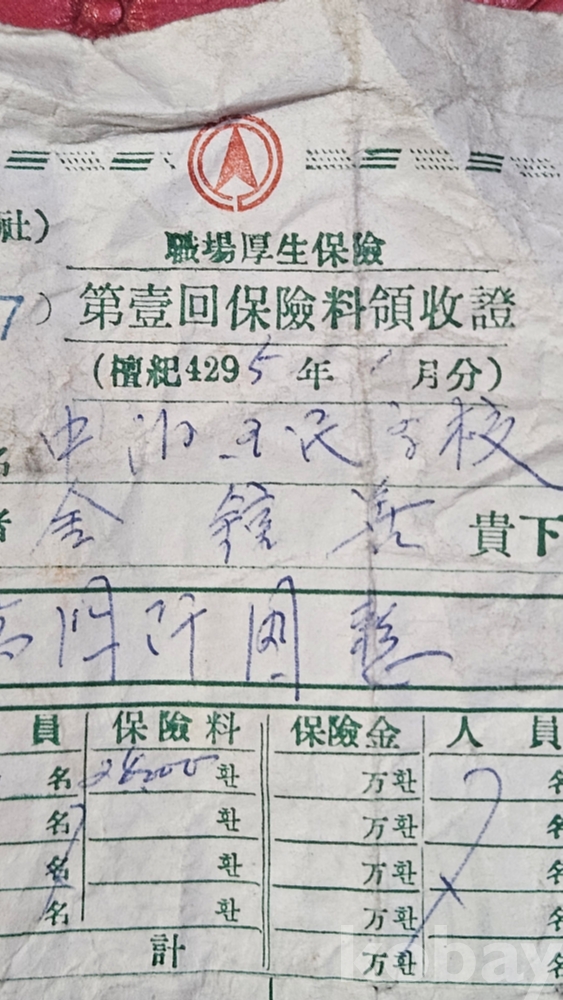 社)
職場厚生保險
7) 第壹回保險料領收證
(檀紀4295年 月分)
名 中 國民學校
者 金鍾 貴下
阡圜整
員 保險料 保險金 人員
名 환 万환 名
名 환 万환 名
名 환 万환 名
名 환 万환 名
計 万환 名
kobay